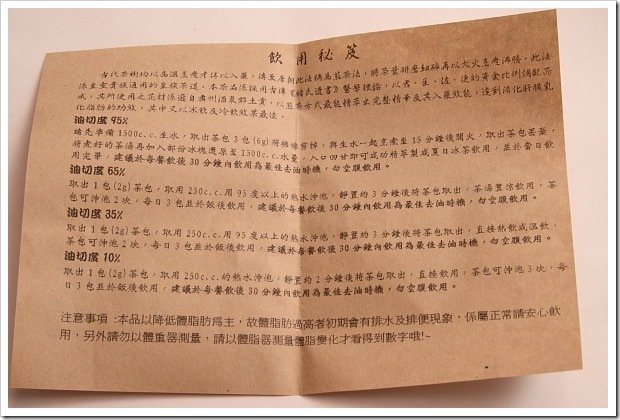 飲用秘笈
古代茶樹均以高溫生產才得以入藥，傳至唐朝此法稱為煎茶法，將茶葉研磨細碎再以大火煮產沸騰，此法
係皇室貴族通用的至臻茶道，本茶品係採用古傳《韓氏遺書》醫學理論，以君、臣、佐、使的黃金比例調配而
成，其所使用之花材係選自肅州酒泉鎮土質，以煎茶方式最能精萃出完整精華及其入藥效能，達到活化肝臟乳
化脂肪的功效，其中又以冰飲及冷飲效果最佳。
油切度 95%
請先準備1500c.c.生水，取出茶包3包(6g)將棉線剪掉，與生水一起烹煮至15分鐘後關火，取出茶包丟棄，
將煮好的茶湯再加入部份冰塊還原至1500c.c.水量，入口回甘即可成功精萃製成夏日冰茶飲用，並於當日飲
用完畢，建議於每餐飲後30分鐘內飲用為最佳去油時機，勿空腹飲用。
油切度 65%
取出1包(2g)茶包，取用250c.c.用95度以上的熱水沖泡，靜置約3分鐘後將茶包取出，茶湯置涼飲用，茶
包可沖泡2次，每日3包並於飯後飲用，建議於每餐飲後30分鐘內飲用為最佳去油時機，勿空腹飲用。
油切度 35%
取出1包(2g)茶包，取用250c.c.用95度以上的熱水沖泡，靜置約3分鐘後將茶包取出，直接熱飲或溫飲，
茶包可沖泡2次，每日3包並於飯後飲用，建議於每餐飲後30分鐘內飲用為最佳去油時機，勿空腹飲用。
油切度 10%
取出1包(2g)茶包，取用250c.c.的熱水沖泡，靜置約2分鐘後將茶包取出，直接飲用，茶包可沖泡3次，每
日3包並於飯後飲用，建議於每餐飲後30分鐘內飲用為最佳去油時機，勿空腹飲用。
注意事項 :本品以降低體脂肪為主，故體脂肪過高者初期會有排水及排便現象，係屬正常請安心飲
用，另外請勿以體重器測量，請以體脂器測量體脂變化才看得到數字哦!~